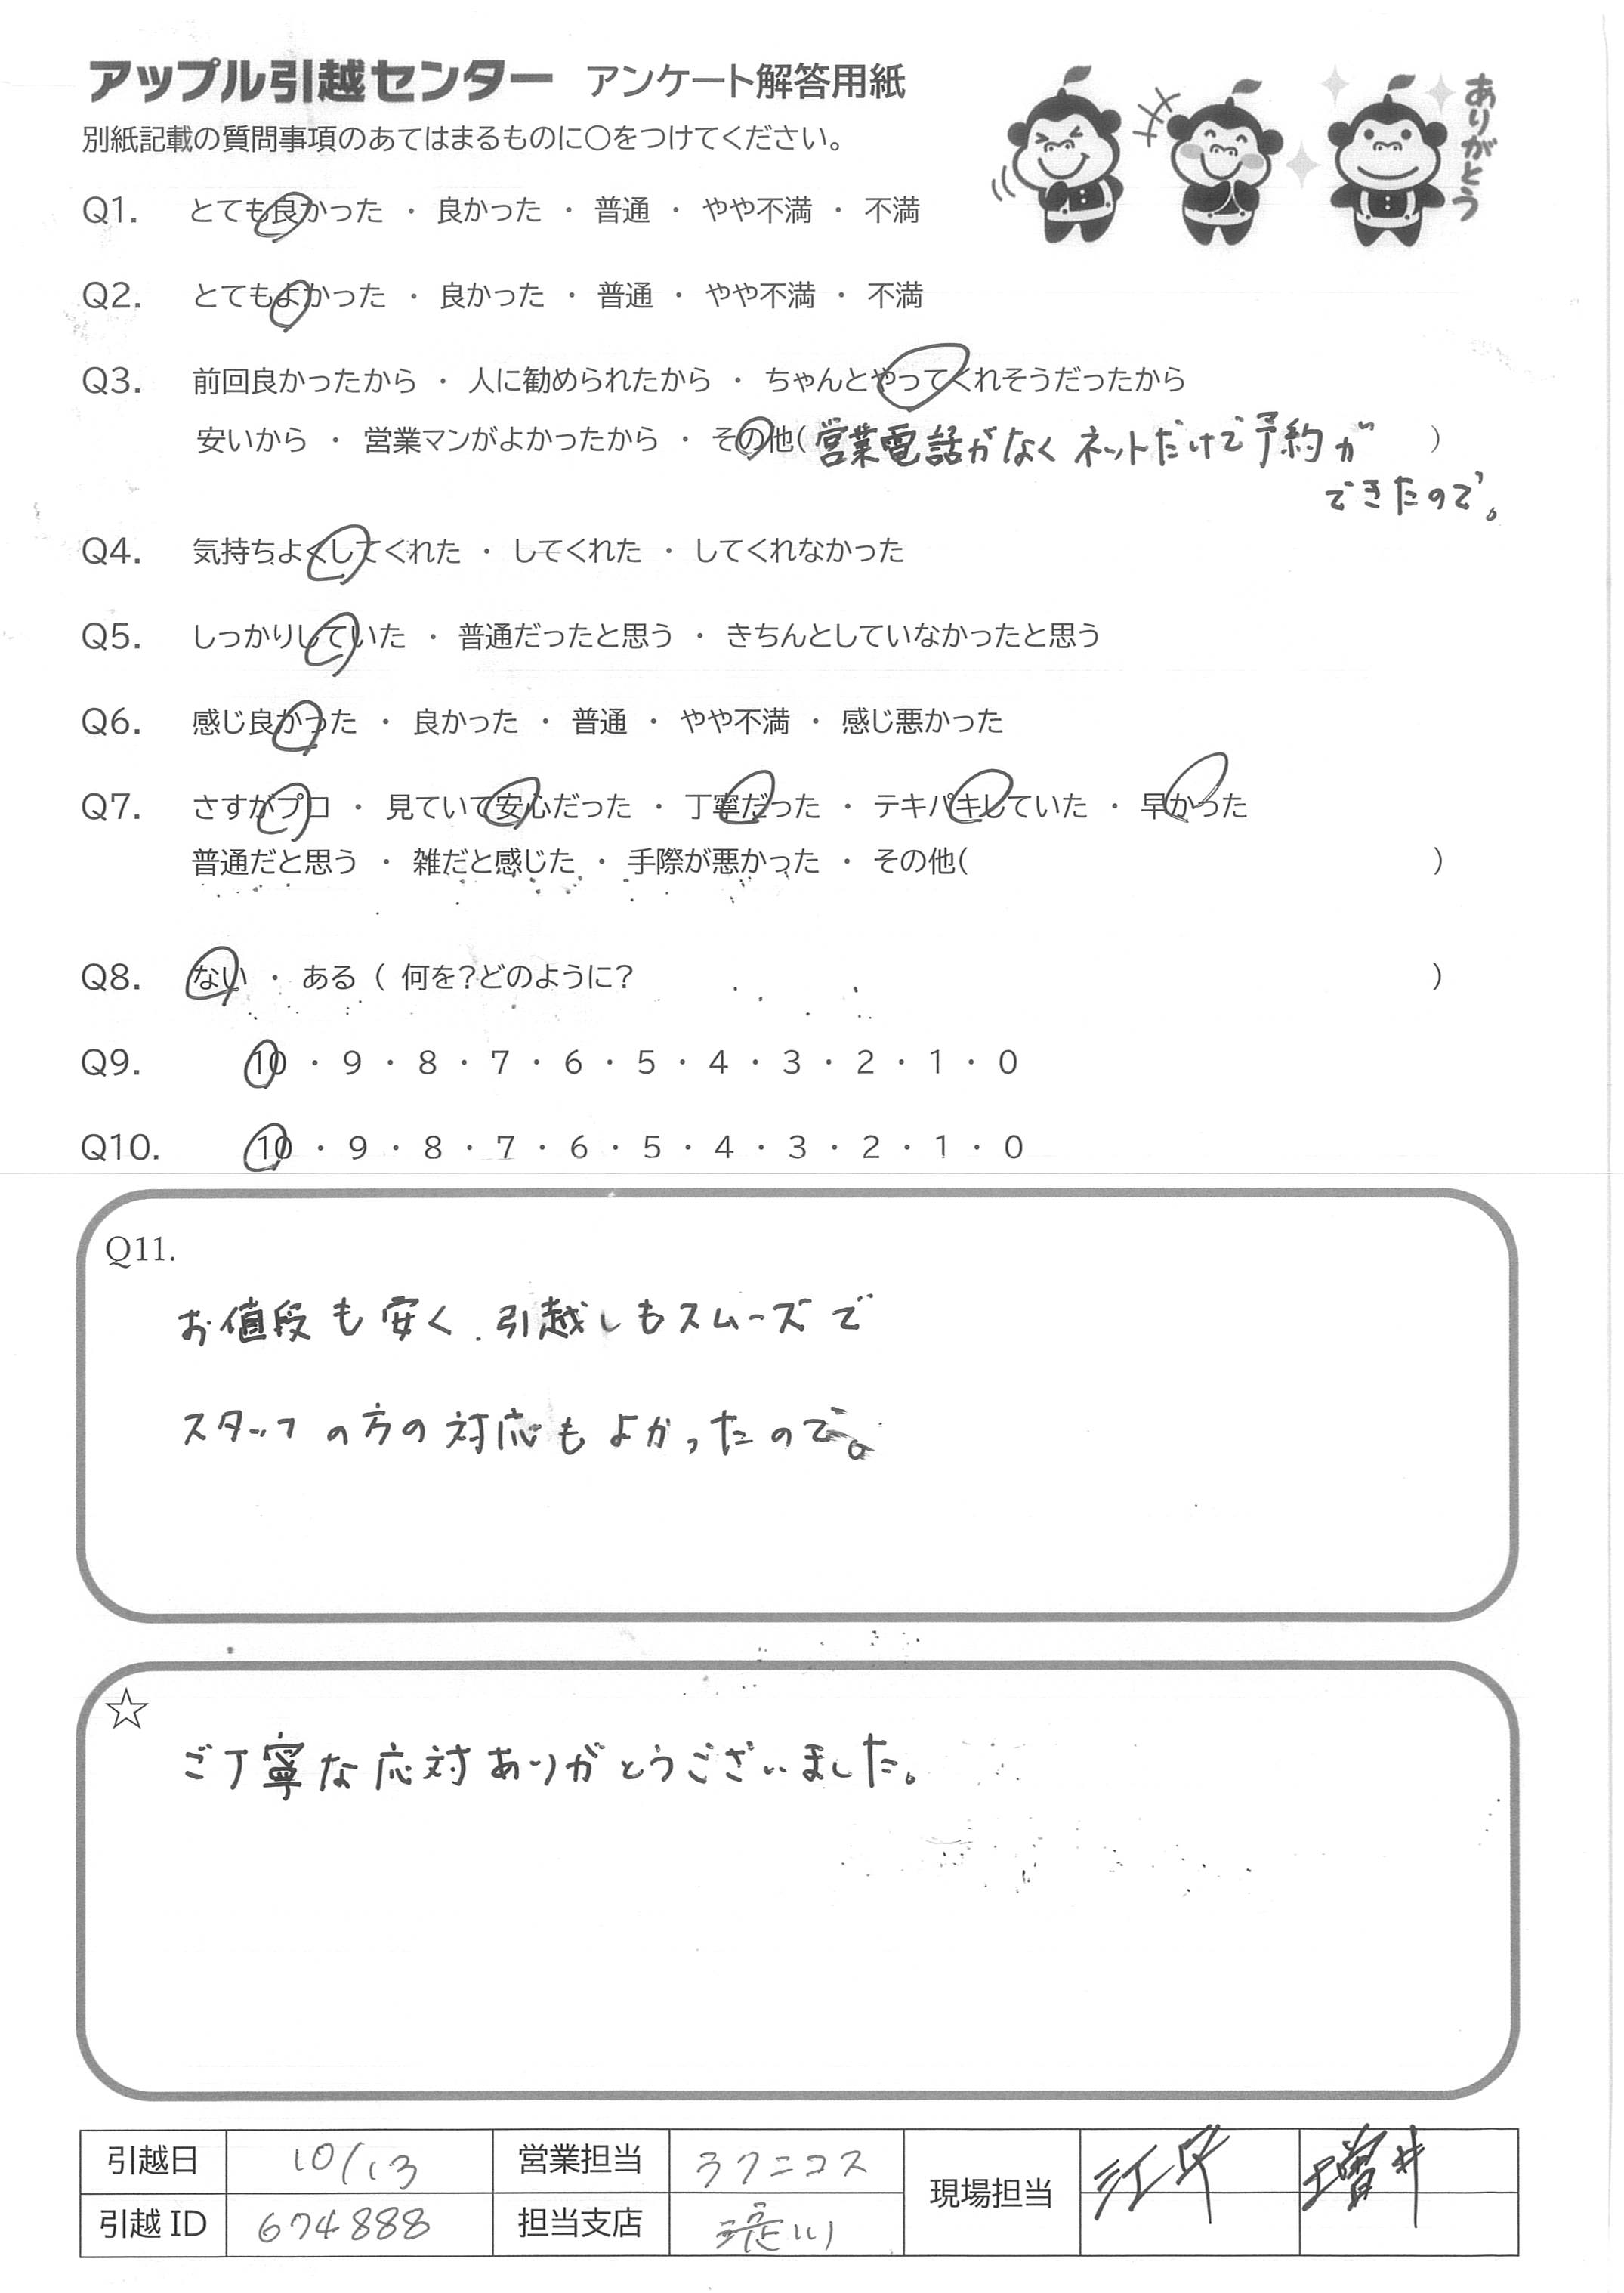 アップル引越センター アンケート解答用紙
ありがとう
別紙記載の質問事項のあてはまるものに〇をつけてください。
Q1. とても良かった ・ 良かった ・ 普通 ・ やや不満 ・ 不満
Q2. とてもよかった ・ 良かった ・ 普通 ・ やや不満 ・ 不満
Q3. 前回良かったから ・ 人に勧められたから ・ ちゃんとやってくれそうだったから
安いから ・ 営業マンがよかったから ・ その他(営業電話がなくネットだけで予約が )
できたので。
Q4. 気持ちよくしてくれた ・ してくれた ・ してくれなかった
Q5. しっかりしていた ・ 普通だったと思う ・ きちんとしていなかったと思う
Q6. 感じ良かった ・ 良かった ・ 普通 ・ やや不満 ・ 感じ悪かった
Q7. さすがプロ ・ 見ていて安心だった ・ 丁寧だった ・ テキパキしていた ・ 早かった
普通だと思う ・ 雑だと感じた ・ 手際が悪かった ・ その他( )
Q8. ない ・ ある ( 何を?どのように? )
Q9. 10 ・ 9 ・ 8 ・ 7 ・ 6 ・ 5 ・ 4 ・ 3 ・ 2 ・ 1 ・ 0
Q10. 10 ・ 9 ・ 8 ・ 7 ・ 6 ・ 5 ・ 4 ・ 3 ・ 2 ・ 1 ・ 0
Q11.
お値段も安く、引越しもスムーズで
スタッフの方の対応もよかったので。
☆
ご丁寧な応対ありがとうございました。
引越日 10/13 営業担当 ラクニコス 現場担当 増井
引越ID 674888 担当支店